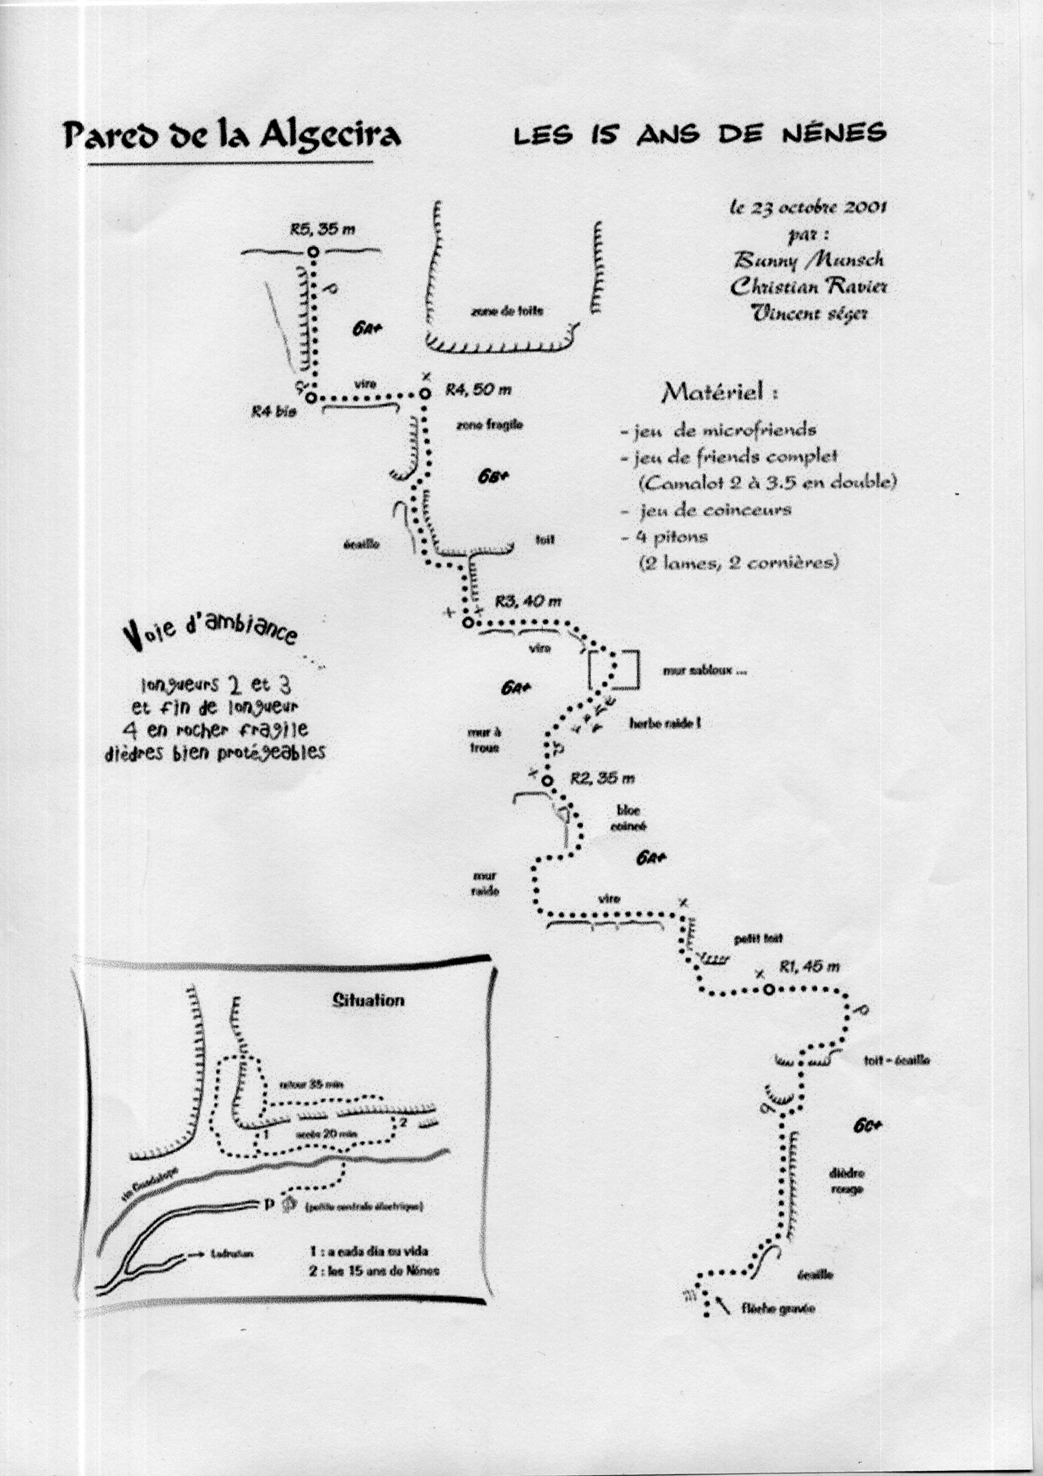 Pared de la Algecira
LES 15 ANS DE NÉNES
le 23 octobre 2001
par :
Bunny Munsch
Christian Ravier
Vincent séger
R5, 35 m
6A+
zone de toits
vire
R4, 50 m
R4 bis
zone fragile
6B+
écaille
toit
Matériel :
- jeu de microfriends
- jeu de friends complet
(Camalot 2 à 3.5 en double)
- jeu de coinceurs
- 4 pitons
(2 lames, 2 cornières)
R3, 40 m
vire
mur sableux ...
6A+
herbe raide !
mur à
trous
Voie d'ambiance
...
longueurs 2 et 3
et fin de longueur
4 en rocher fragile
dièdres bien protégeables
R2, 35 m
bloc
coincé
6A+
mur
raide
vire
petit toit
R1, 45 m
toit - écaille
6C+
dièdre
rouge
écaille
flèche gravée
Situation
retour 35 min
1
accès 20 min
2
rio Guadalope
P
(petite centrale électrique)
Ladruñan
1 : a cada dia su vida
2 : les 15 ans de Nénes